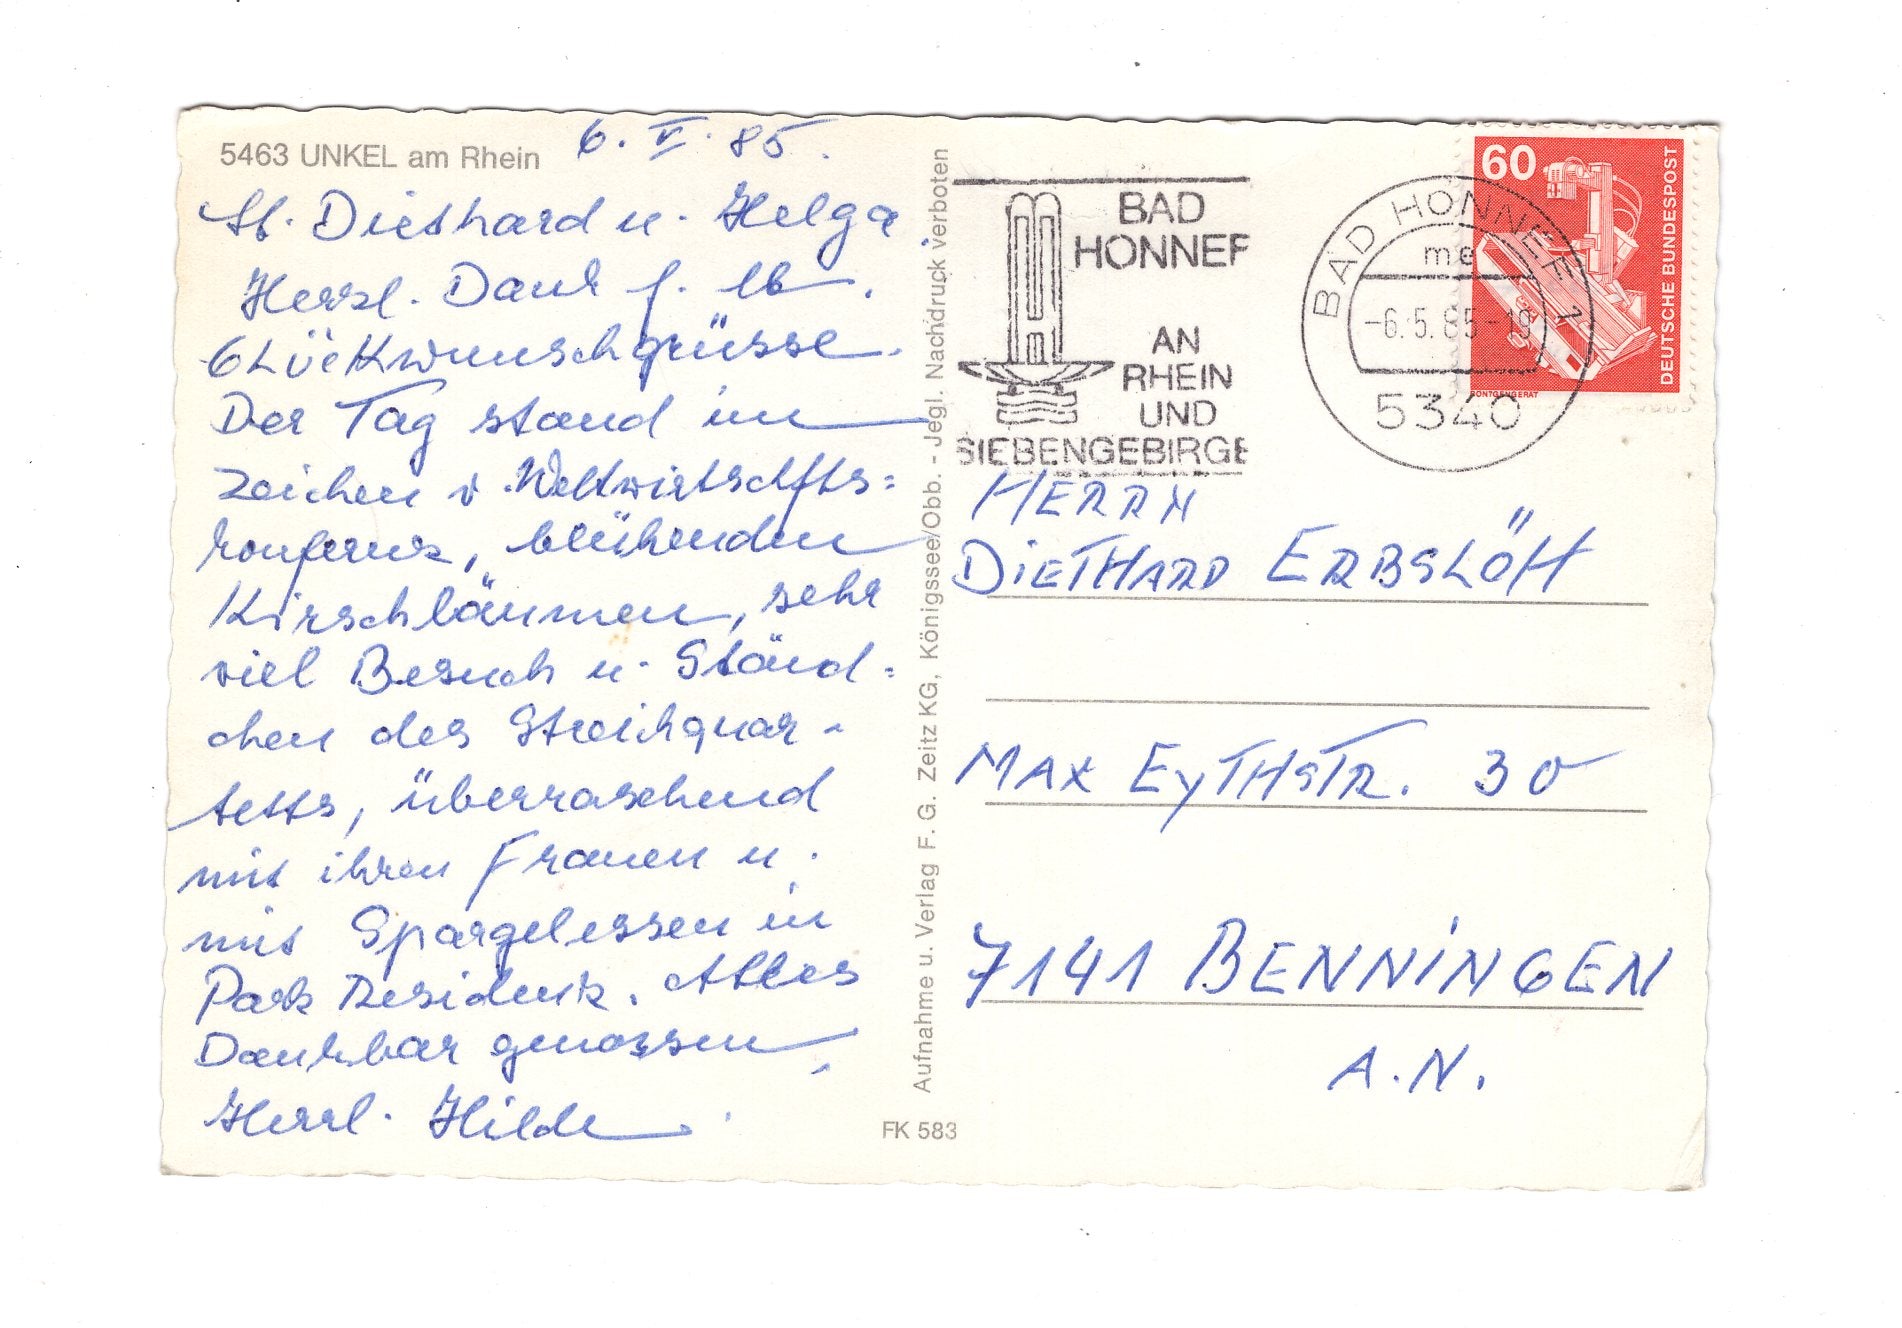 5463 UNKEL am Rhein
6. V. 85.
Lb. Diethard u. Helga,
Herzl. Dank f. lb.
GLÜCKwunschgrüsse.
Der Tag stand im
Zeichen v. Weltwirtschfts=
konferenz, blühenden
Kirschbäumen, sehr
viel Besuch u. Ständ=
chen des Streichquar-
tetts, überraschend
mit ihren Frauen u.
mit Spargelessen in
Park Residenz. Alles
Dankbar genossen.
Herzl. Hilde
Aufnahme u. Verlag F. G. Zeitz KG, Königssee/Obb. - Jegl. Nachdruck verboten
FK 583
BAD
HONNEF
AN
RHEIN
UND
SIEBENGEBIRGE
BAD HONNEF 1
me
-6.5.85-19
5340
60
DEUTSCHE BUNDESPOST
RÖNTGENGERÄT
HERRN
DIETHARD ERBSLÖH
MAX EYTHSTR. 30
7141 BENNINGEN
A.N.